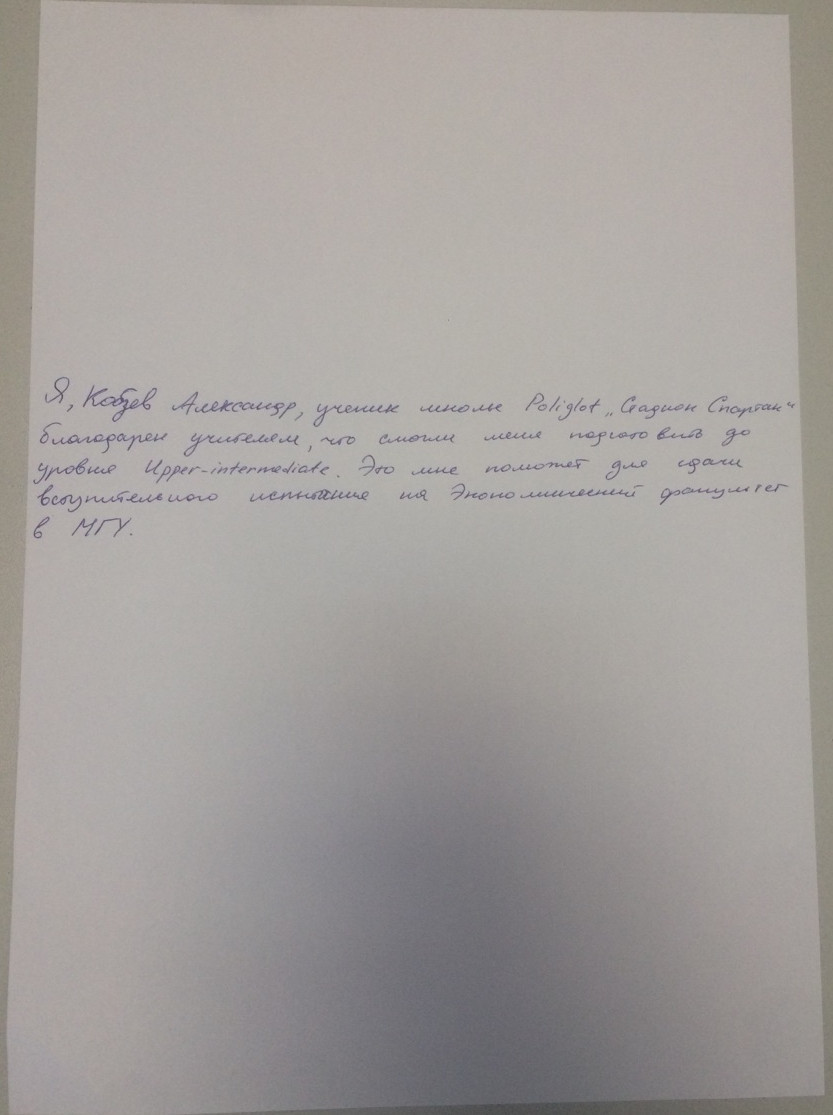 Я, Кобзев Александр, ученик школы Poliglot „Стадион Спартак“
благодарен учителям, что смогли меня подготовить до
уровня Upper-intermediate. Это мне поможет для сдачи
вступительного испытания на Экономический факультет
в МГУ.